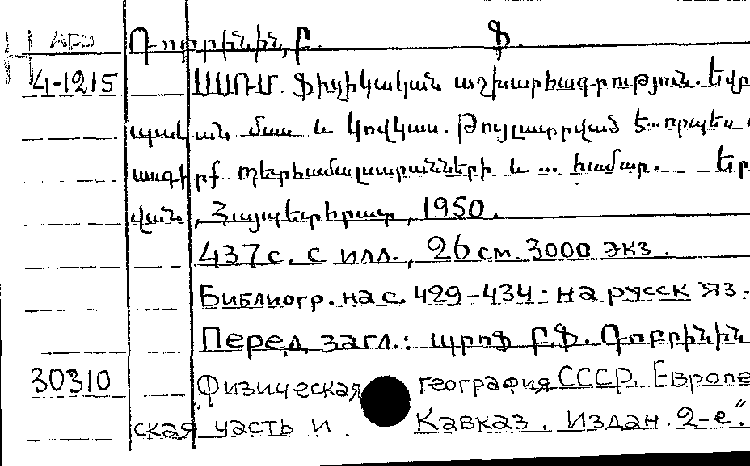 Դոբրինին, Բ. Ֆ.
4-1215 ՍՍՌՄ. Ֆիզիկական աշխարհագրություն. Եվրո
պական մաս և Կովկաս. Թույլատրված է... որպես
դասագիրք պետհամալսարանների և ... համար. Եր
վան, Հայպետհրատ, 1950.
437 с. с илл., 26 см. 3000 экз.
Библиогр. на с. 429-434: на русск яз.
Перед загл.: պրոֆ Բ.Ֆ. Դոբրինին
30310 Физическая география СССР. Европе
ская часть и Кавказ. Издан. 2-е.